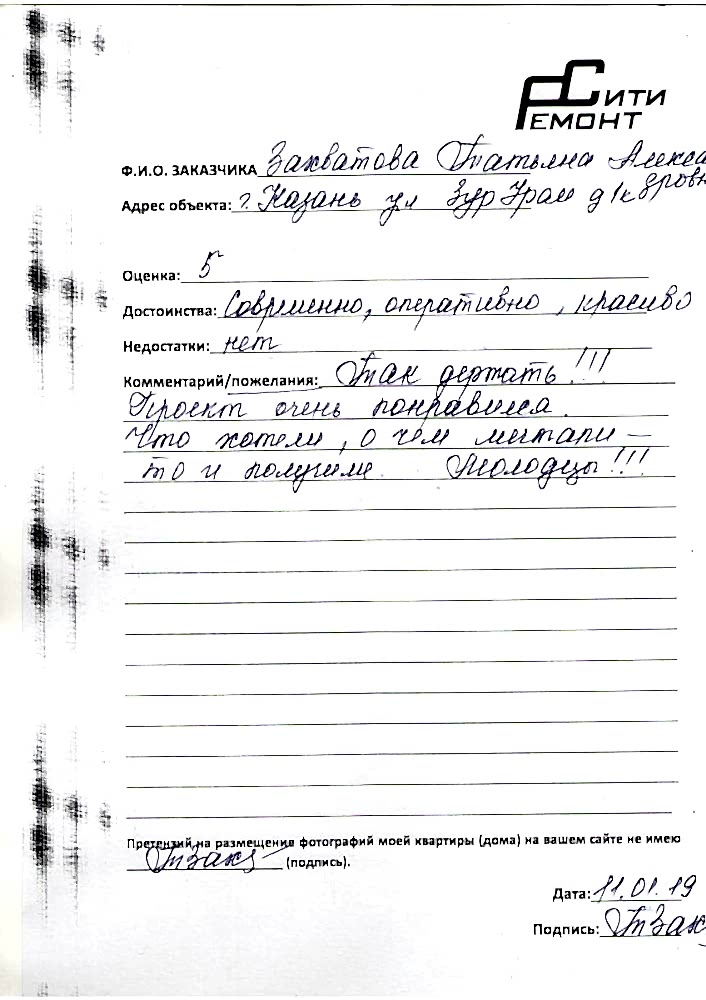 Сити
Ремонт
Ф.И.О. ЗАКАЗЧИКА Захватова Татьяна Алекса
ндровна
Адрес объекта: г. Казань ул Зур Урам д 1к
Оценка: 5
Достоинства: Современно, оперативно, красиво
Недостатки: нет
Комментарий/пожелания: Так держать!!!
Проект очень понравился.
Что хотели, о чем мечтали –
то и получили. Молодцы!!!
Претензий на размещение фотографий моей квартиры (дома) на вашем сайте не имею
ТЗах (подпись).
Дата: 11.01.19
Подпись: ТЗах